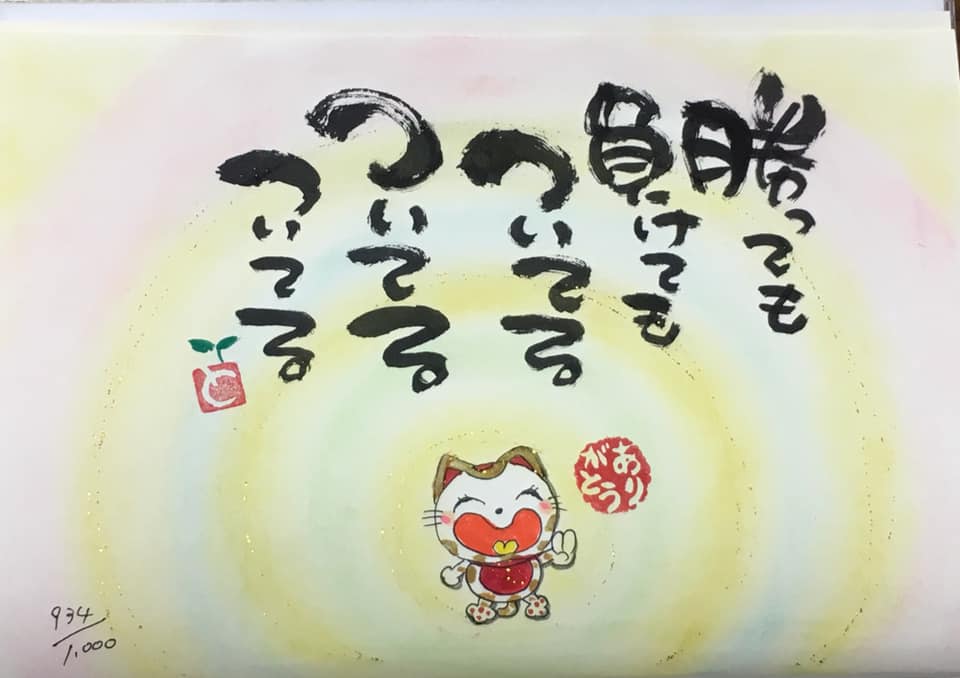 勝っても
負けても
ついてる
ついてる
ついてる
と
ありがとう
934/1,000